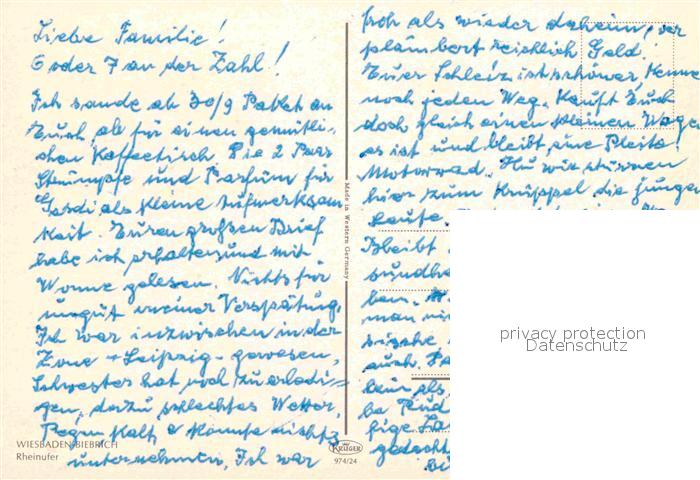 Liebe Familie!
6 oder 7 an der Zahl!
Ich sande ab 30/9 Paket an
Euch, als für einen gemütli-
chen Kaffeetisch. Die 2 Paar
Strümpfe und Parfüm für
Gardi als kleine Aufmerksam
keit. Euren großen Brief
habe ich erhalten und mit
Wonne gelesen. Nichts für
ungut meiner Verspätung,
Ich war inzwischen in der
Zone - Leipzig - gewesen,
Schwester hat noch zu erledi-
gen, dazu schlechtes Wetter,
Regen kalt, konnte nichts
unternehmen. Ich war
WIESBADEN-BIEBRICH
Rheinufer
Made in Western Germany
KRÜGER
974/24
froh als wieder daheim, ver
plämbert reichlich Geld!
Euer Schleiz ist schöner, kenne
noch jeden Weg. Kauft Euch
doch gleich einen kleinen Wagen
es ist und bleibt eine Pleite!
Motorrad. Hu wie stürzen
hier zum Knüppel die junge
Leute.
Bleibt
sundhe
ben.
man
auch.
bein als
be Rud
fige
gedacht
privacy protection
Datenschutz